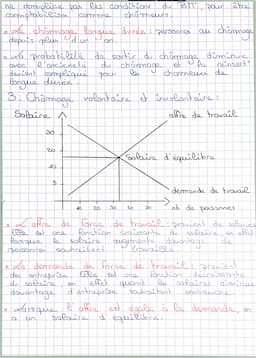 ne remplisse pas les conditions du BIT, pour être
comptabilisé comme chômeurs.
• Le chômage longue durée : personne au chômage
depuis plus d'un an.
• La probabilité de sortir du chômage diminue
avec l'ancienneté du chômage et la réinsert°
devient compliqué pour les chômeurs de
longue durée.
3. Chômage volontaire et involontaire :
Salaire
offre de travail
Salaire d'équilibre
demande de travail
nb de personnes
• L'offre de force de travail : provient de salariés
Elle est une fonction croissante du salaire, en effet
lorsque le salaire augmente davantage de
personnes souhaitent travailler.
• La demande de force de travail : provient
des entreprise Elle est une fonction décroissante
du salaire, en effet quand les salaires diminue
davantage d'entreprise souhaitent embaucher.
• Lorsque l'offre est égale à la demande, on
a un salaire d'équilibre.